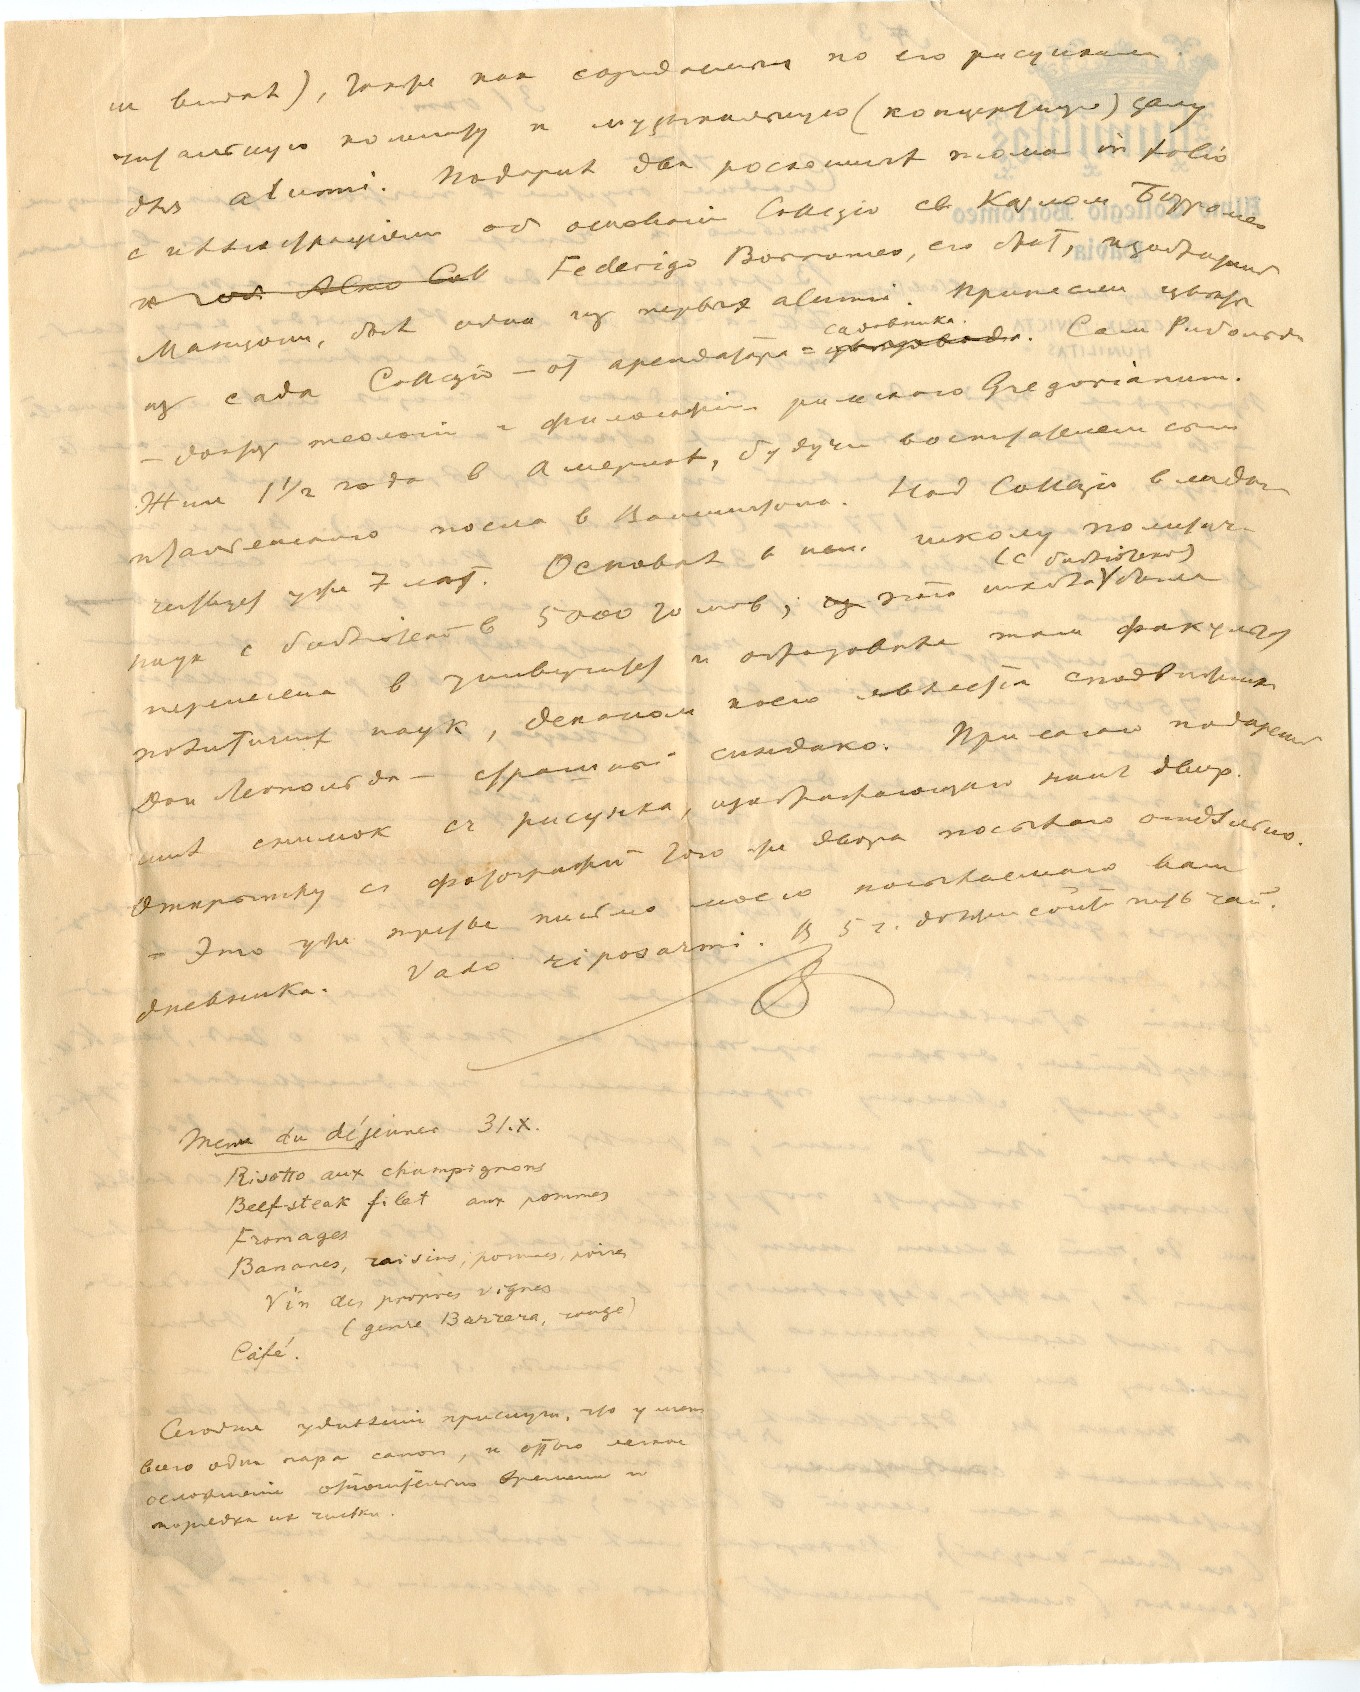 и видах), также как созданныя по его рисункам
читальную комнату и музыкальную (концертную) залу
для alunni. Подарил два роскошных тома in folio
с иллюстрациями об основании Collegio св. Карлом Борромео
и Federigo Borromeo, его брат, изображ
Манцони, был один из первых alunni. Принесли цветы
садовника.
из сада Collegio – от арендатора =. Сам Рибольди
– доктор теологии и философии римского Gregorianum.
Жил 1½ года в Америке, будучи воспитателем сына
итальянского посла в Вашингтоне. Над Collegio
уже 7 лет. Основал в нем школу политич.
(с библиотекой)
наук с библиотекой в 5000 томов; эта школа была
перенесена в университет и образовала там факультет
политичных наук, деканом коего
Дон Леопольда – страшный. Прилагаю
мне снимок с рисунка, изображающего наш двор.
Открытку с фотографией того же двора посылаю отдельно.
– Это уже третье письмо моего посылаемого вам
дневника. Vado riposarmi. В 5 ч. должен сойти пить чай.
Menu du déjeuner 31.X.
Risotto aux champignons
Beefsteak filet aux pommes
Fromages
Bananes, raisins, pommes, poires
Vin des propres vignes
(genre Barrera, rouge)
Café.
Сегодня удивлялись прислуги, что у меня
всего одна пара сапог, и от этого легкое
осложнение относительно времени и
порядка их чистки.